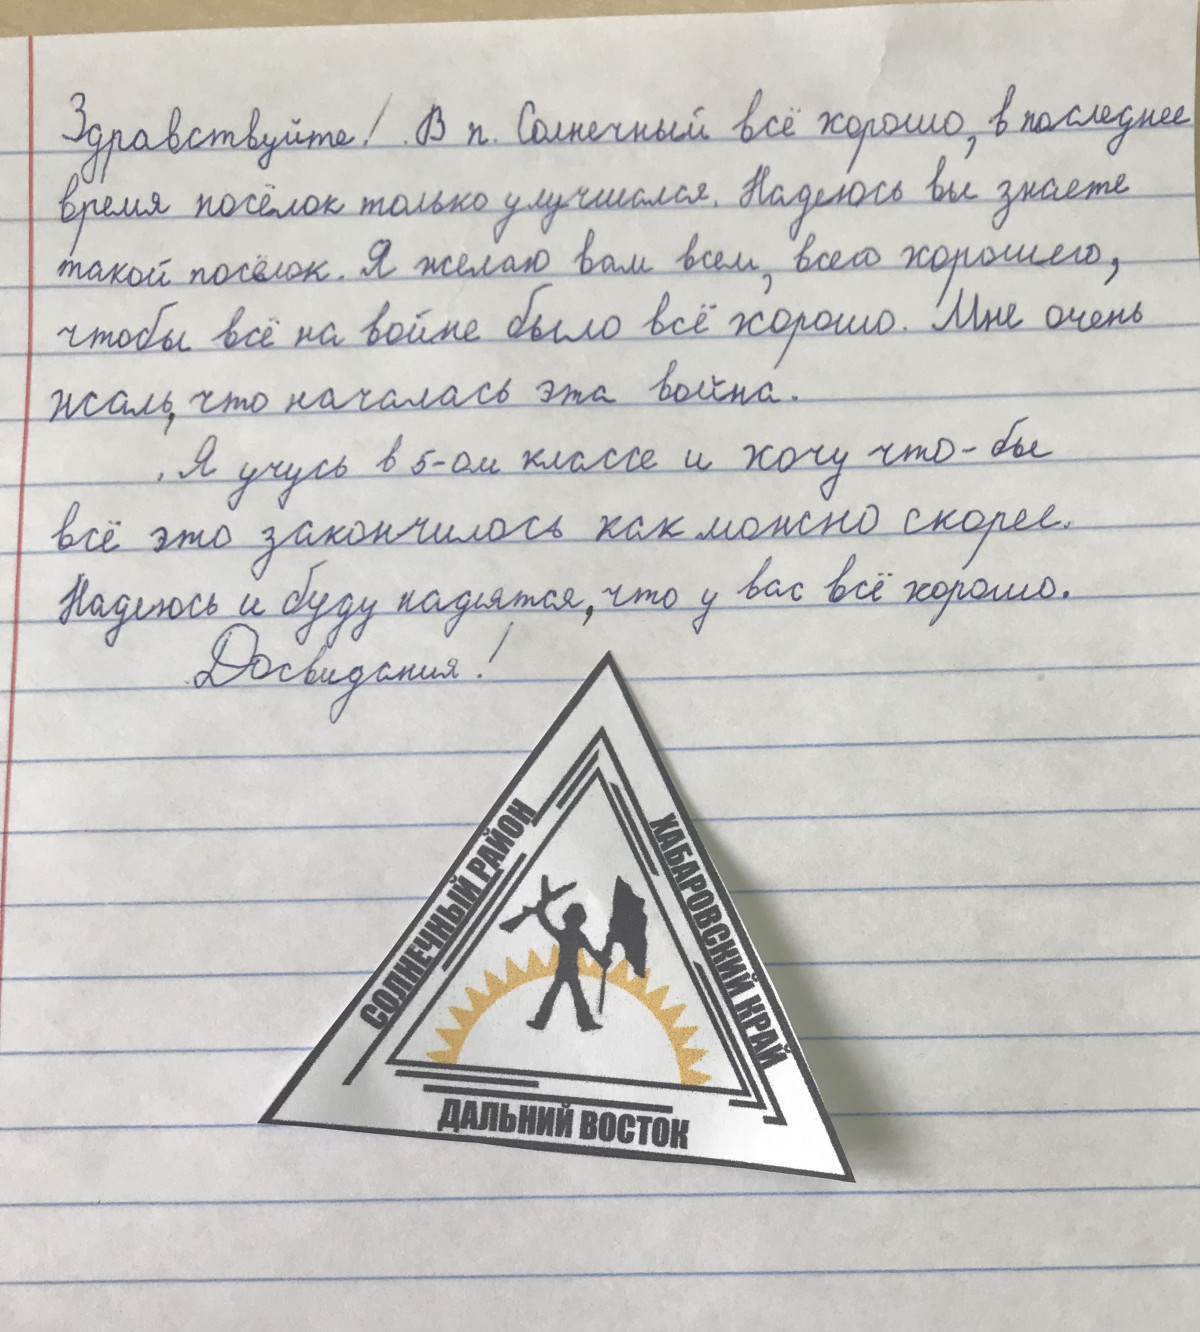 Здравствуйте! В п. Солнечный всё хорошо, в последнее
время посёлок только улучшался. Надеюсь вы знаете
такой посёлок. Я желаю вам всем, всего хорошего,
чтобы всё на войне было всё хорошо. Мне очень
жаль, что началась эта война.
Я учусь в 5-ом классе и хочу что-бы
всё это закончилось как можно скорее.
Надеюсь и буду надеятся, что у вас всё хорошо.
Досвидания!
СОЛНЕЧНЫЙ РАЙОН
ХАБАРОВСКИЙ КРАЙ
ДАЛЬНИЙ ВОСТОК